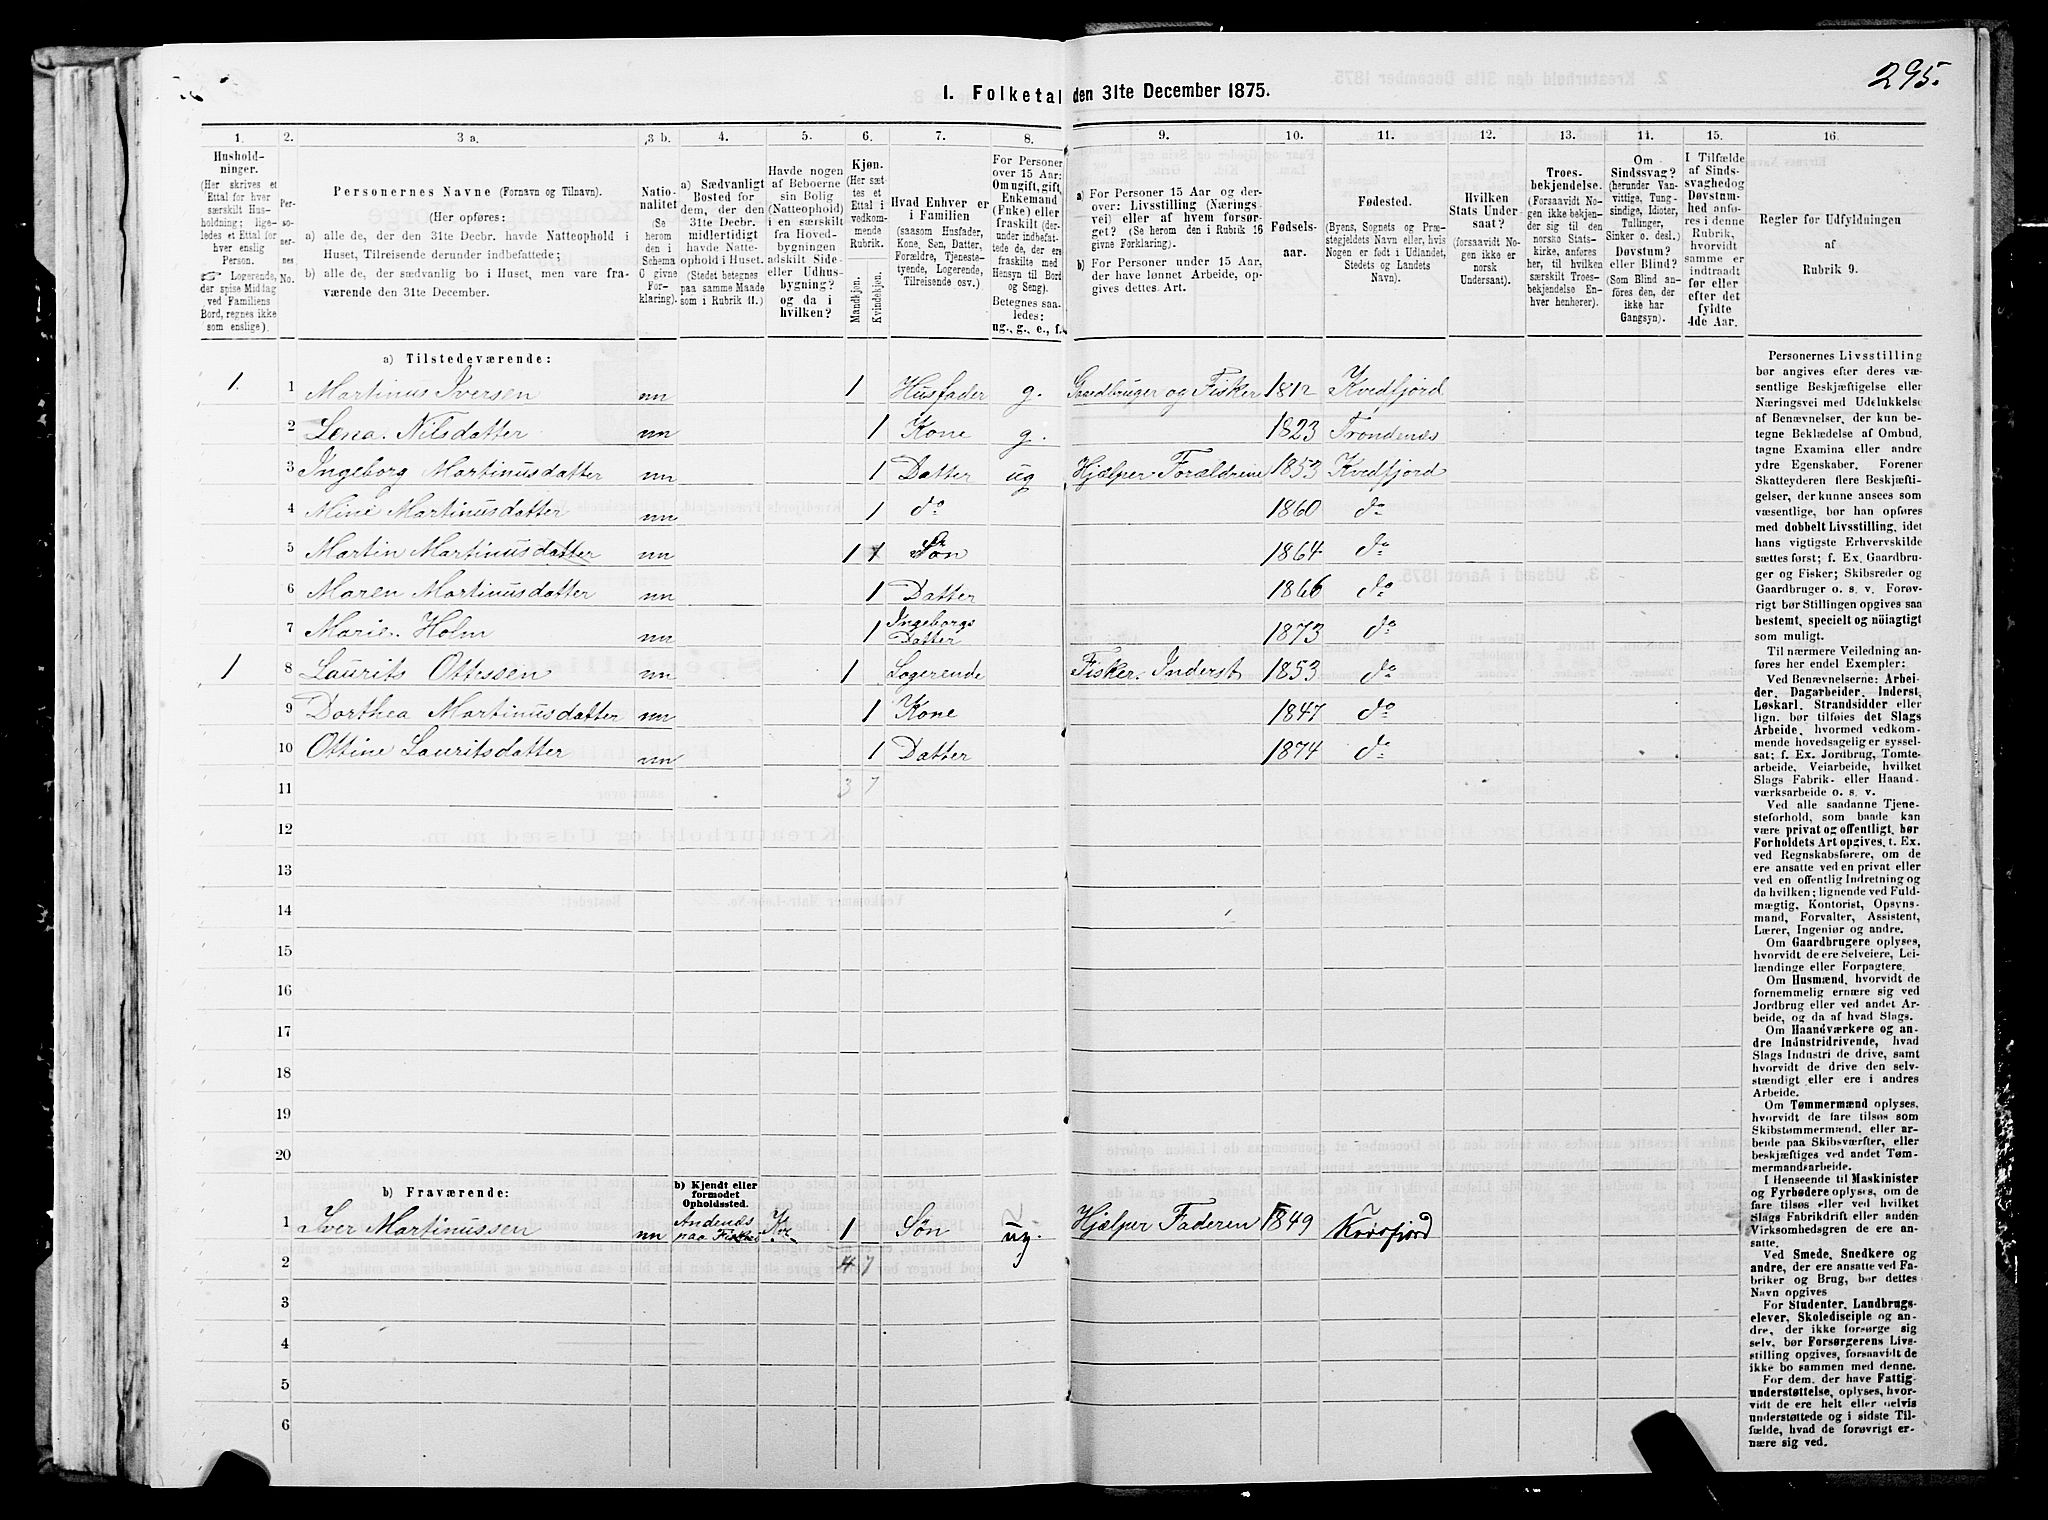 295.
1. Folketal den 31te December 1875.
1. 2. 3 a. 3 b. 4. 5. 6. 7. 8. 9. 10. 11. 12. 13. 14. 15. 16.
Hushold-
ninger.
(Her skrives et
Ettal for hver
særskilt Hus-
holdning; lige-
ledes et Ettal for
hver enslig
Person.
☞ Logerende,
der spise Middag
ved Familiens
Bord, regnes ikke
som enslige).
Per-
so-
ner-
nes
No.
Personernes Navne (Fornavn og Tilnavn).
(Her opføres:
a) alle de, der den 31te Decbr. havde Natteophold i
Huset, Tilreisende derunder indbefattede;
b) alle de, der sædvanlig bo i Huset, men vare fra-
værende den 31te December.
Natio-
nalitet
(Se
herom
den i
Schema
C givne
For-
klaring).
a) Sædvanligt
Bosted for
dem, der den
31te Decbr.
midlertidigt
havde Natte-
ophold i Huset.
(Stedet betegnes
paa samme Maade
som i Rubrik 11.)
Havde nogen
af Beboerne
sin Bolig
(Natteophold)
i en særskilt
fra Hoved-
bygningen
adskilt Side-
eller Udhus-
bygning?
og da i
hvilken?
Kjøn.
(Her sæt-
tes et
Ettal i
vedkom-
mende
Rubrik.
Mandkjøn.
Kvindekjøn.
Hvad Enhver er
i Familien
(saasom Husfader,
Kone, Søn, Datter,
Forældre, Tjeneste-
tyende, Logerende,
Tilreisende osv.)
For Personer
over 15 Aar:
Om ugift, gift,
Enkemand
(Enke) eller
fraskilt (der-
under indbefat-
tede, de ere
fraskilte med
Hensyn til Bord
og Seng).
Betegnes saa-
ledes:
ug., g., e., f.
a) For Personer 15 Aar og der-
over: Livsstilling (Nærings-
vei) eller af hvem forsør-
get? (Se herom den i Rubrik 16
givne Forklaring).
b) For Personer under 15 Aar,
der have lønnet Arbeide, op-
gives dettes Art.
Fødsels-
aar.
Fødested.
(Byens, Sognets og Præ-
stegjeldets Navn eller, hvis
Nogen er født i Udlandet,
Stedets og Landets
Navn).
Hvilken
Stats Under-
saat?
(forsaavidt No-
gen ikke er
norsk
Undersaat).
Troes-
bekjendelse.
(Forsaavidt No-
gen ikke bekjen-
der sig til den
norske Stats-
kirke, anføres
her, til hvilken
særskilt Troes-
bekjendelse En-
hver henhører).
Om
Sindssvag?
(herunder Van-
vittige, Tung-
sindige, Idioter,
Tullinger,
Sinker o. desl.)
Døvstum?
eller Blind?
(Som Blind an-
føres den, der
ikke har
Gangsyn).
I Tilfælde
af Sinds-
svaghed og
Døvstum-
hed anfø-
res i denne
Rubrik,
hvorvidt
samme er
indtraadt
før eller
efter det
fyldte
4de Aar.
Regler for Udfyldningen
af
Rubrik 9.
a) Tilstedeværende:
1 1 Martinus Iversen nn 1 Husfader g. Gaardbruger og Fisker 1812 Kvedfjord
2 Lena Nilsdatter nn 1 Kone g. 1823 Trondenæs
3 Ingeborg Martinusdatter nn 1 Datter ug Hjælper Forældrene 1853 Kvedfjord
4 Mine Martinusdatter nn 1 do 1860 do
5 Martin Martinusdatter nn 1 1 Søn 1864 do
6 Maren Martinusdatter nn 1 Datter 1866 do
7 Marie Holm nn 1 Ingeborgs Datter 1873 do
1 8 Laurits Ottessen nn 1 Logerende Fisker. Inderst 1853 do
9 Dorthea Martinusdatter nn 1 Kone 1847 do
10 Ottine Lauritsdatter nn 1 Datter 1874 do
11 3 7
12
13
14
15
16
17
18
19
20
b) Fraværende:
b) Kjendt eller
formodet
Opholdssted.
1 Iver Martinussen nn Andenæs paa Fiskeri 1 Søn ug. Hjælper Faderen 1849
2 4 7
3
4
5
6
Personernes Livsstilling
bør angives efter deres væ-
sentlige Beskjæftigelse eller
Næringsvei med Udelukkelse
af Benævnelser, der kun be-
tegne Beklædelse af Ombud,
tagne Examina eller andre
ydre Egenskaber. Forener
Skatteyderen flere Beskjæfti-
gelser, der kunne ansees som
væsentlige, bør han opføres
med dobbelt Livsstilling, idet
hans vigtigste Erhvervskilde
sættes først; f. Ex. Gaardbru-
ger og Fisker; Skibsreder og
Gaardbruger o. s. v. Forøv-
rigt bør Stillingen opgives saa
bestemt, specielt og nøiagtigt
som muligt.
Til nærmere Veiledning an-
føres her endel Exempler:
Ved Benævnelserne: Arbei-
der, Dagarbeider, Inderst,
Løskarl, Strandsidder eller
lign. bør tilføies det Slags
Arbeide, hvormed vedkom-
mende hovedsagelig er syssel-
sat; f. Ex. Jordbrug, Tomte-
arbeide, Veiarbeide, hvilket
Slags Fabrik- eller Haand-
værksarbeide o. s. v.
Ved alle saadanne Tjene-
steforhold, som baade kan
være privat og offentligt, bør
Forholdets Art opgives, t. Ex.
ved Regnskabsførere, om de
ere ansatte ved en privat eller
ved en offentlig Indretning og
da hvilken; lignende ved Fuld-
mægtig, Kontorist, Opsyns-
mand, Forvalter, Assistent,
Lærer, Ingeniør og andre.
Om Gaardbrugere oplyses,
hvorvidt de ere Selveiere, Lei-
lændinge eller Forpagtere.
Om Husmænd, hvorvidt de
fornemmelig ernære sig ved
Jordbrug eller ved andet Ar-
beide, og da af hvad Slags.
Om Haandværkere og an-
dre Industridrivende, hvad
Slags Industri de drive, samt
hvorvidt de drive den selv-
stændigt eller ere i andres
Arbeide.
Om Tømmermænd oplyses,
hvorvidt de fare tilsøs som
Skibstømmermænd, eller ar-
beide paa Skibsværfter, eller
beskjæftiges ved andet Tøm-
mermandsarbeide.
I Henseende til Maskinister
og Fyrbødere oplyses, om de
fare tilsøs eller ved hvilket
Slags Fabrikdrift eller anden
Virksomhedsgren de ere an-
satte.
Ved Smede, Snedkere og
andre, der ere ansatte ved Fa-
briker og Brug, bør dettes
Navn opgives
For Studenter, Landbrugs-
elever, Skoledisciple og an-
dre, der ikke forsørge sig
selv, bør Forsørgerens Livs-
stilling opgives, forsaavidt de
ikke bo sammen med denne.
For dem, der have Fattig-
understøttelse, oplyses, hvor-
vidt de ere helt eller delvis
understøttede og i sidste Til-
fælde, hvad de forøvrigt er-
nære sig ved.